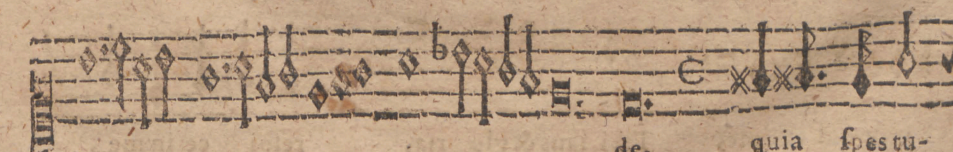 de. quia ſpes tu-